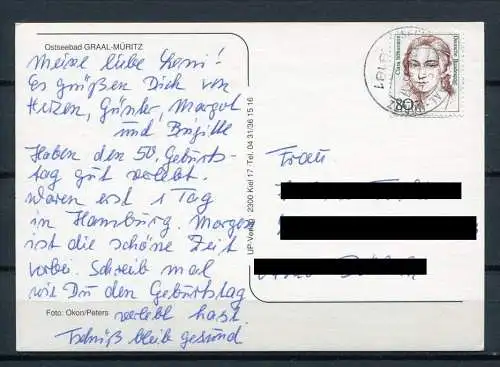 Ostseebad GRAAL-MÜRITZ
Meine liebe
Es grüßen Dich von
Herzen, Günter, Margot
und Brigitte
Haben den 50. Geburts-
tag gut verlebt.
Waren erst 1 Tag
in Hamburg. Morgen
ist die schöne Zeit
vorbei. Schreib mal
wie Du den Geburtstag
verlebt hast
Tschüß bleibe gesund
Foto: Okon/Peters
UP-Verlag, 2300 Kiel 17 · Tel. 04 31/36 15 16
Frau
Deutsche Bundespost
Clara Schumann
80